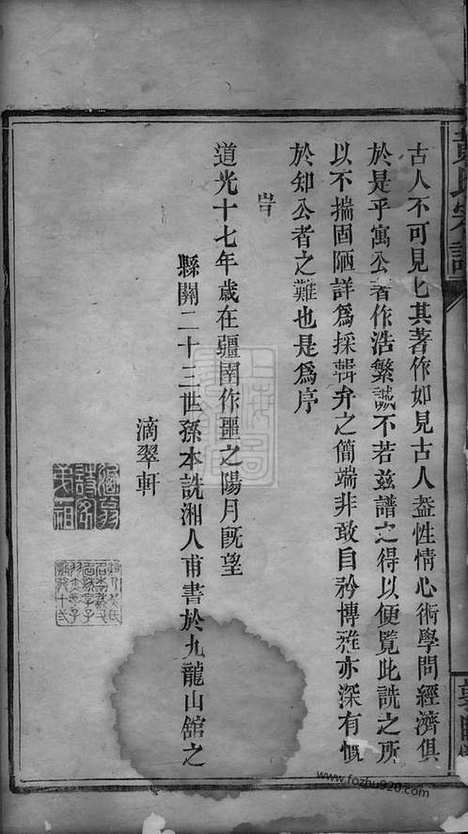 古人不可見匕其著作如見古人葢性情心術學問經濟俱
於是乎寓公者作浩繁誠不若茲譜之得以便覧此詵之所
以不揣固陋詳為採輯弁之簡端非敢自矜博雅亦深有慨
於知公者之難也是為序
旹
道光十七年歲在疆圉作噩之陽月旣望
縣開二十三世孫本詵湘人甫書於九龍山舘之
滴翠軒
黃氏宗譜
www.fozhu920.com